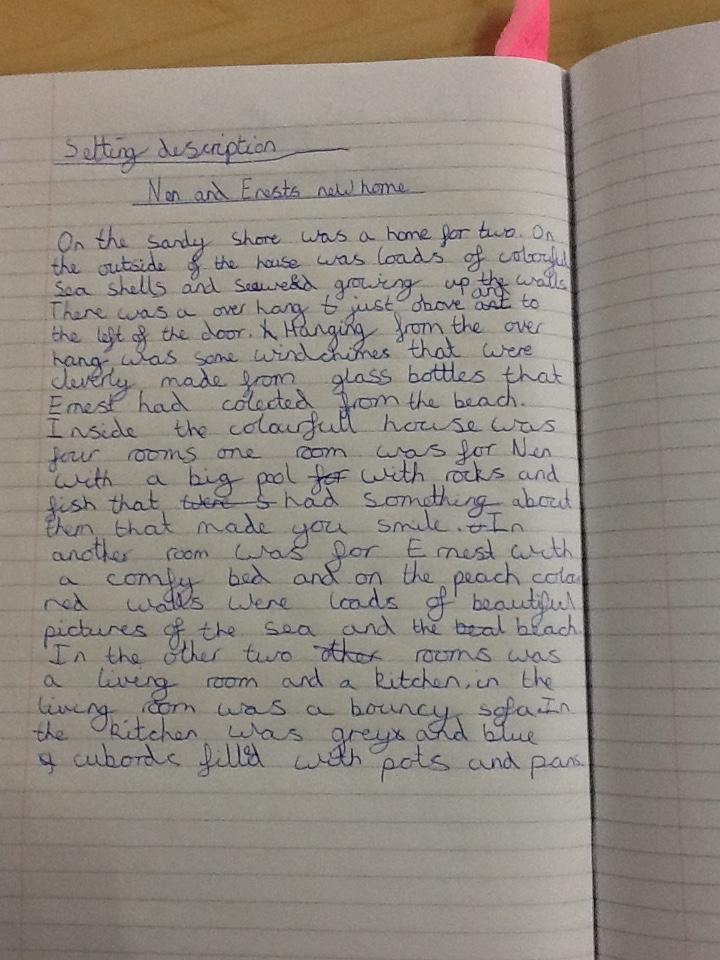 Setting description
Nen and Erests new home
On the sandy shore was a home for two. On
the outside of the house was loads of colourful
sea shells and seaweed growing up the walls.
There was a over hang just above and to
the left of the door. Hanging from the over
hang was some windchimes that were
cleverly made from glass bottles that
Ernest had colected from the beach.
Inside the colourfull house was
four rooms one room was for Nen
with a big pool for with rocks and
fish that were s had something about
them that made you smile. In
another room was for Ernest with
a comfy bed and on the peach colou
red walls were loads of beautiful
pictures of the sea and the beat beach.
In the other two other rooms was
a living room and a kitchen, in the
living room was a bouncy sofa In
the kitchen was grey and blue
cubords filled with pots and pans.